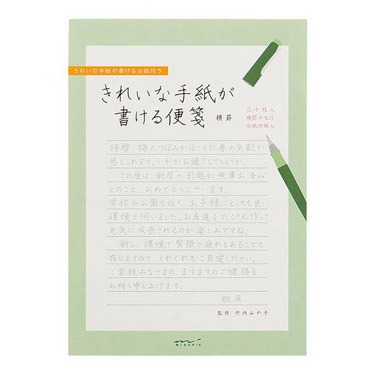 きれいな手紙が書ける台紙付き
きれいな手紙が
書ける便箋 横罫
拝啓 梅のつぼみがほころび春の気配が
感じられます。いかがお過ごしでしょうか。
この度は、新居へ引越が無事お済み
とのこと、おめでとうございます。
学校やお園も近く、お子様にとっても良い
環境と伺いました。お友達をたくさん作って
元気に成長されるのが楽しみですね。
新しい環境で緊張や疲れもあることと
存じますので、くれぐれもご自愛ください。
ご家族みなさまの、ますますのご健勝を
お祈り申し上げます。
敬具
監修 竹内みや子
MIDORI